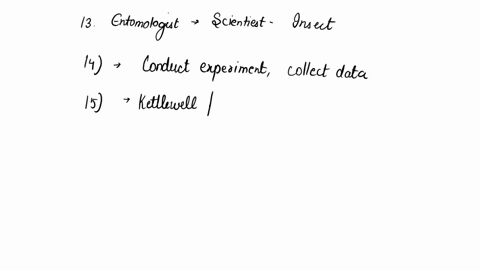 13. Entomologist → Scientist - Insect
14) → Conduct experiment, collect data
15) → Kettlewell |